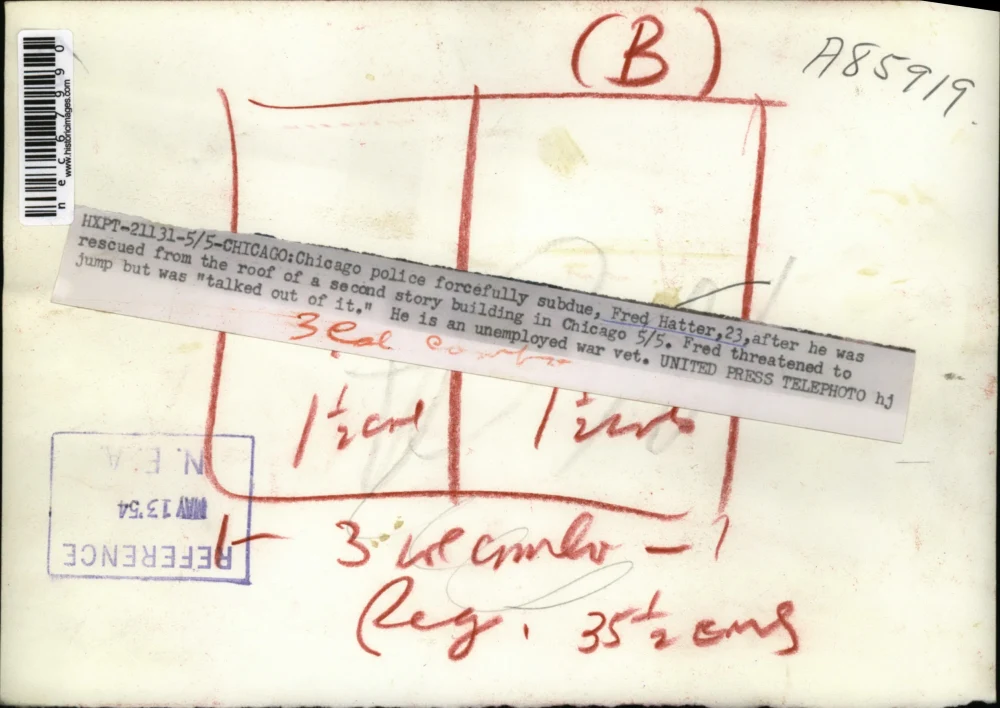 (B)
A85919.
nec67990
www.historicimages.com
HXPT-21131-5/5-CHICAGO:Chicago police forcefully subdue, Fred Hatter,23,after he was
rescued from the roof of a second story building in Chicago 5/5. Fred threatened to
jump but was "talked out of it." He is an unemployed war vet. UNITED PRESS TELEPHOTO hj
3 col combo
1 1/2 col
1 1/2 cols
N.E.A.
MAY 13'54
REFERENCE
3 col combo
Reg. 35 1/2 ems